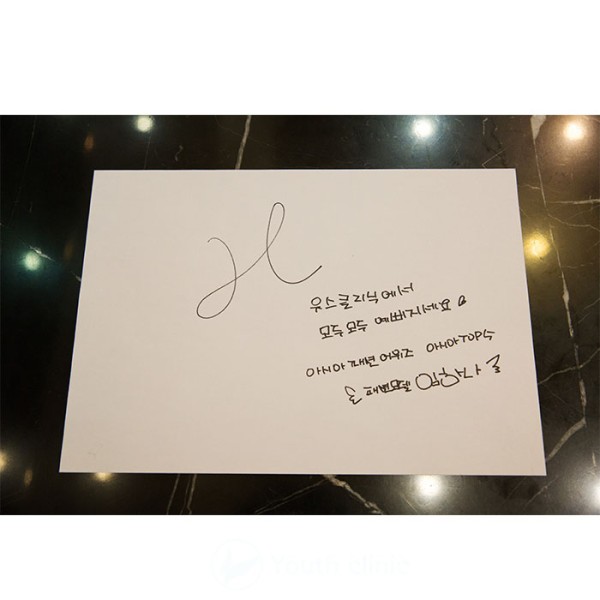 우스클리닉에서
모두모두 예뻐지세요
아시아 패션 어워즈 아시아TOP상
패션모델 임한나
Youth clinic